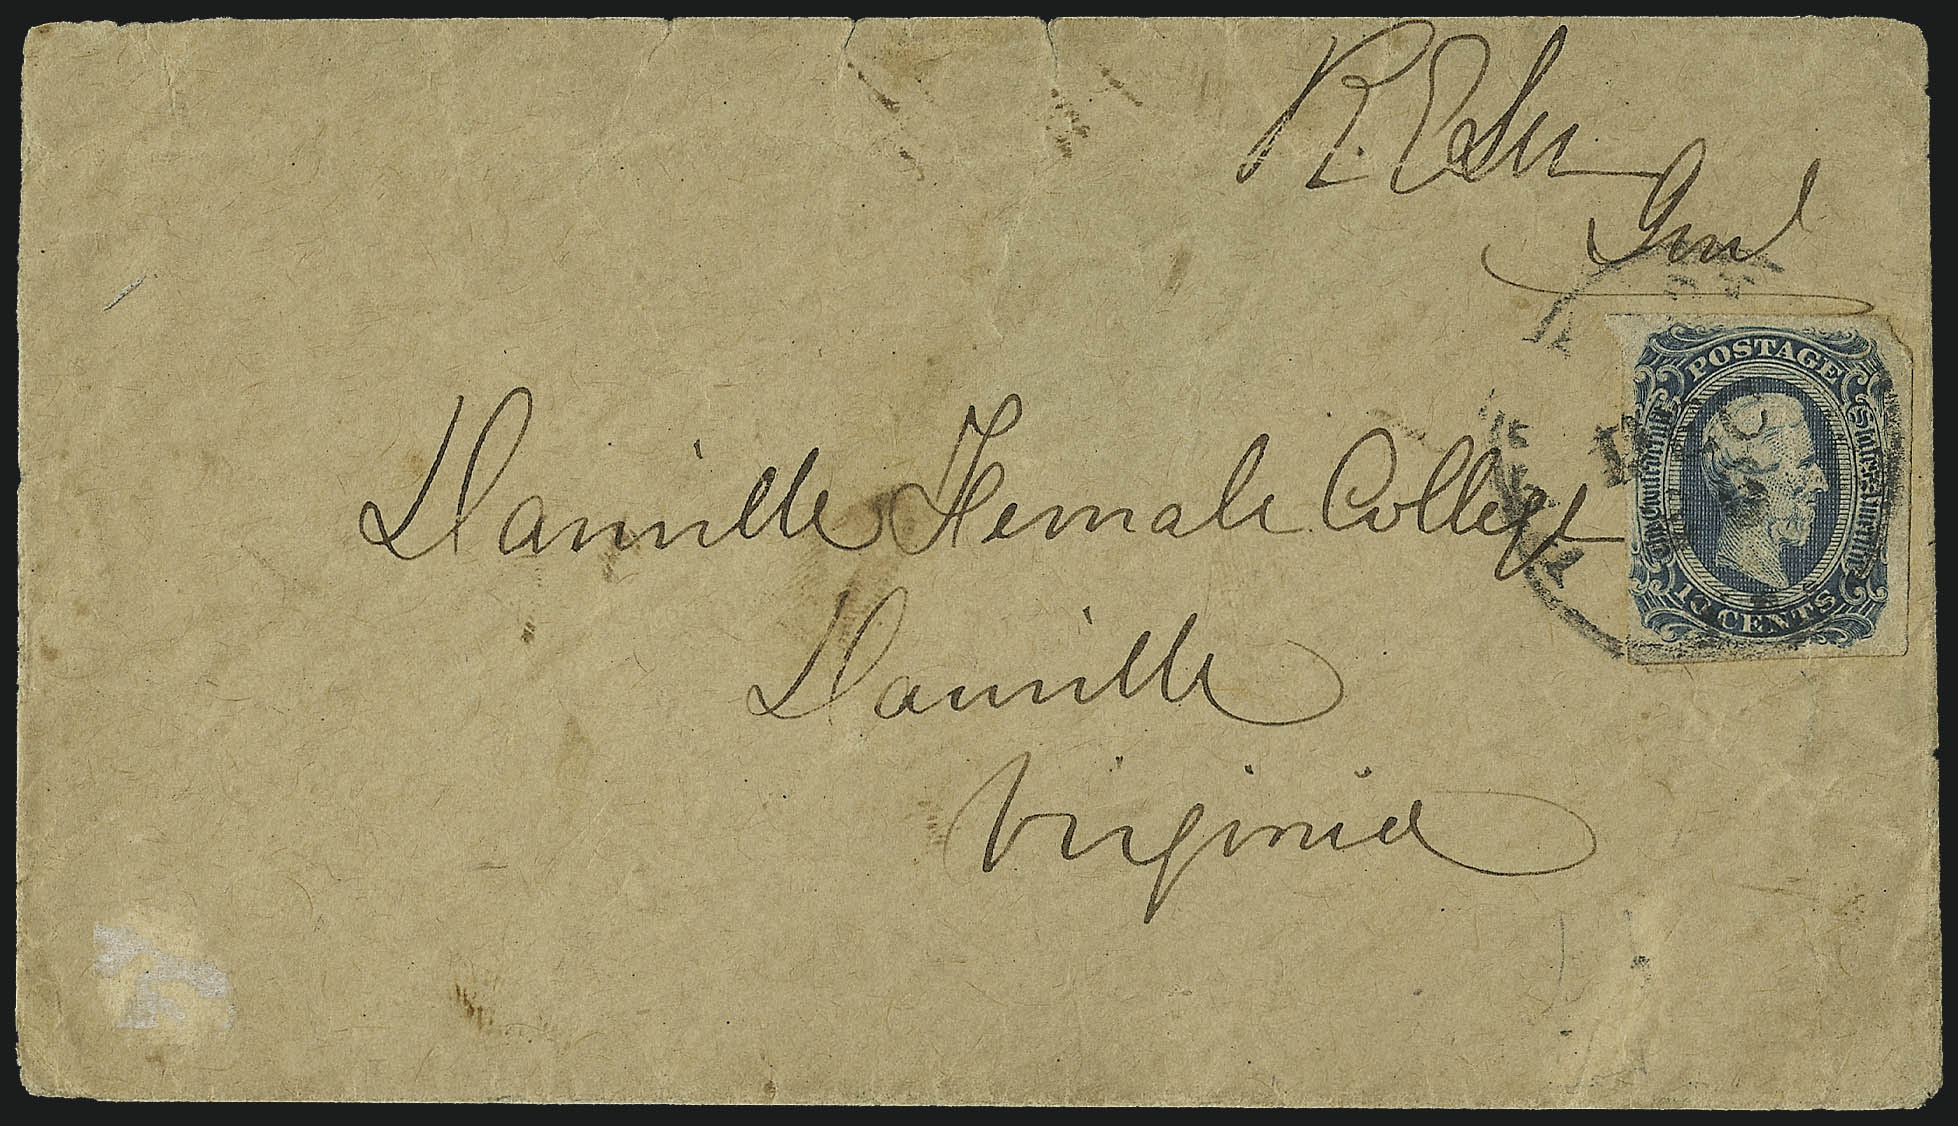 R. E Lee
Genl
Danville Female College
Danville
Virginia
POSTAGE
The Confederate States of America
10 CENTS